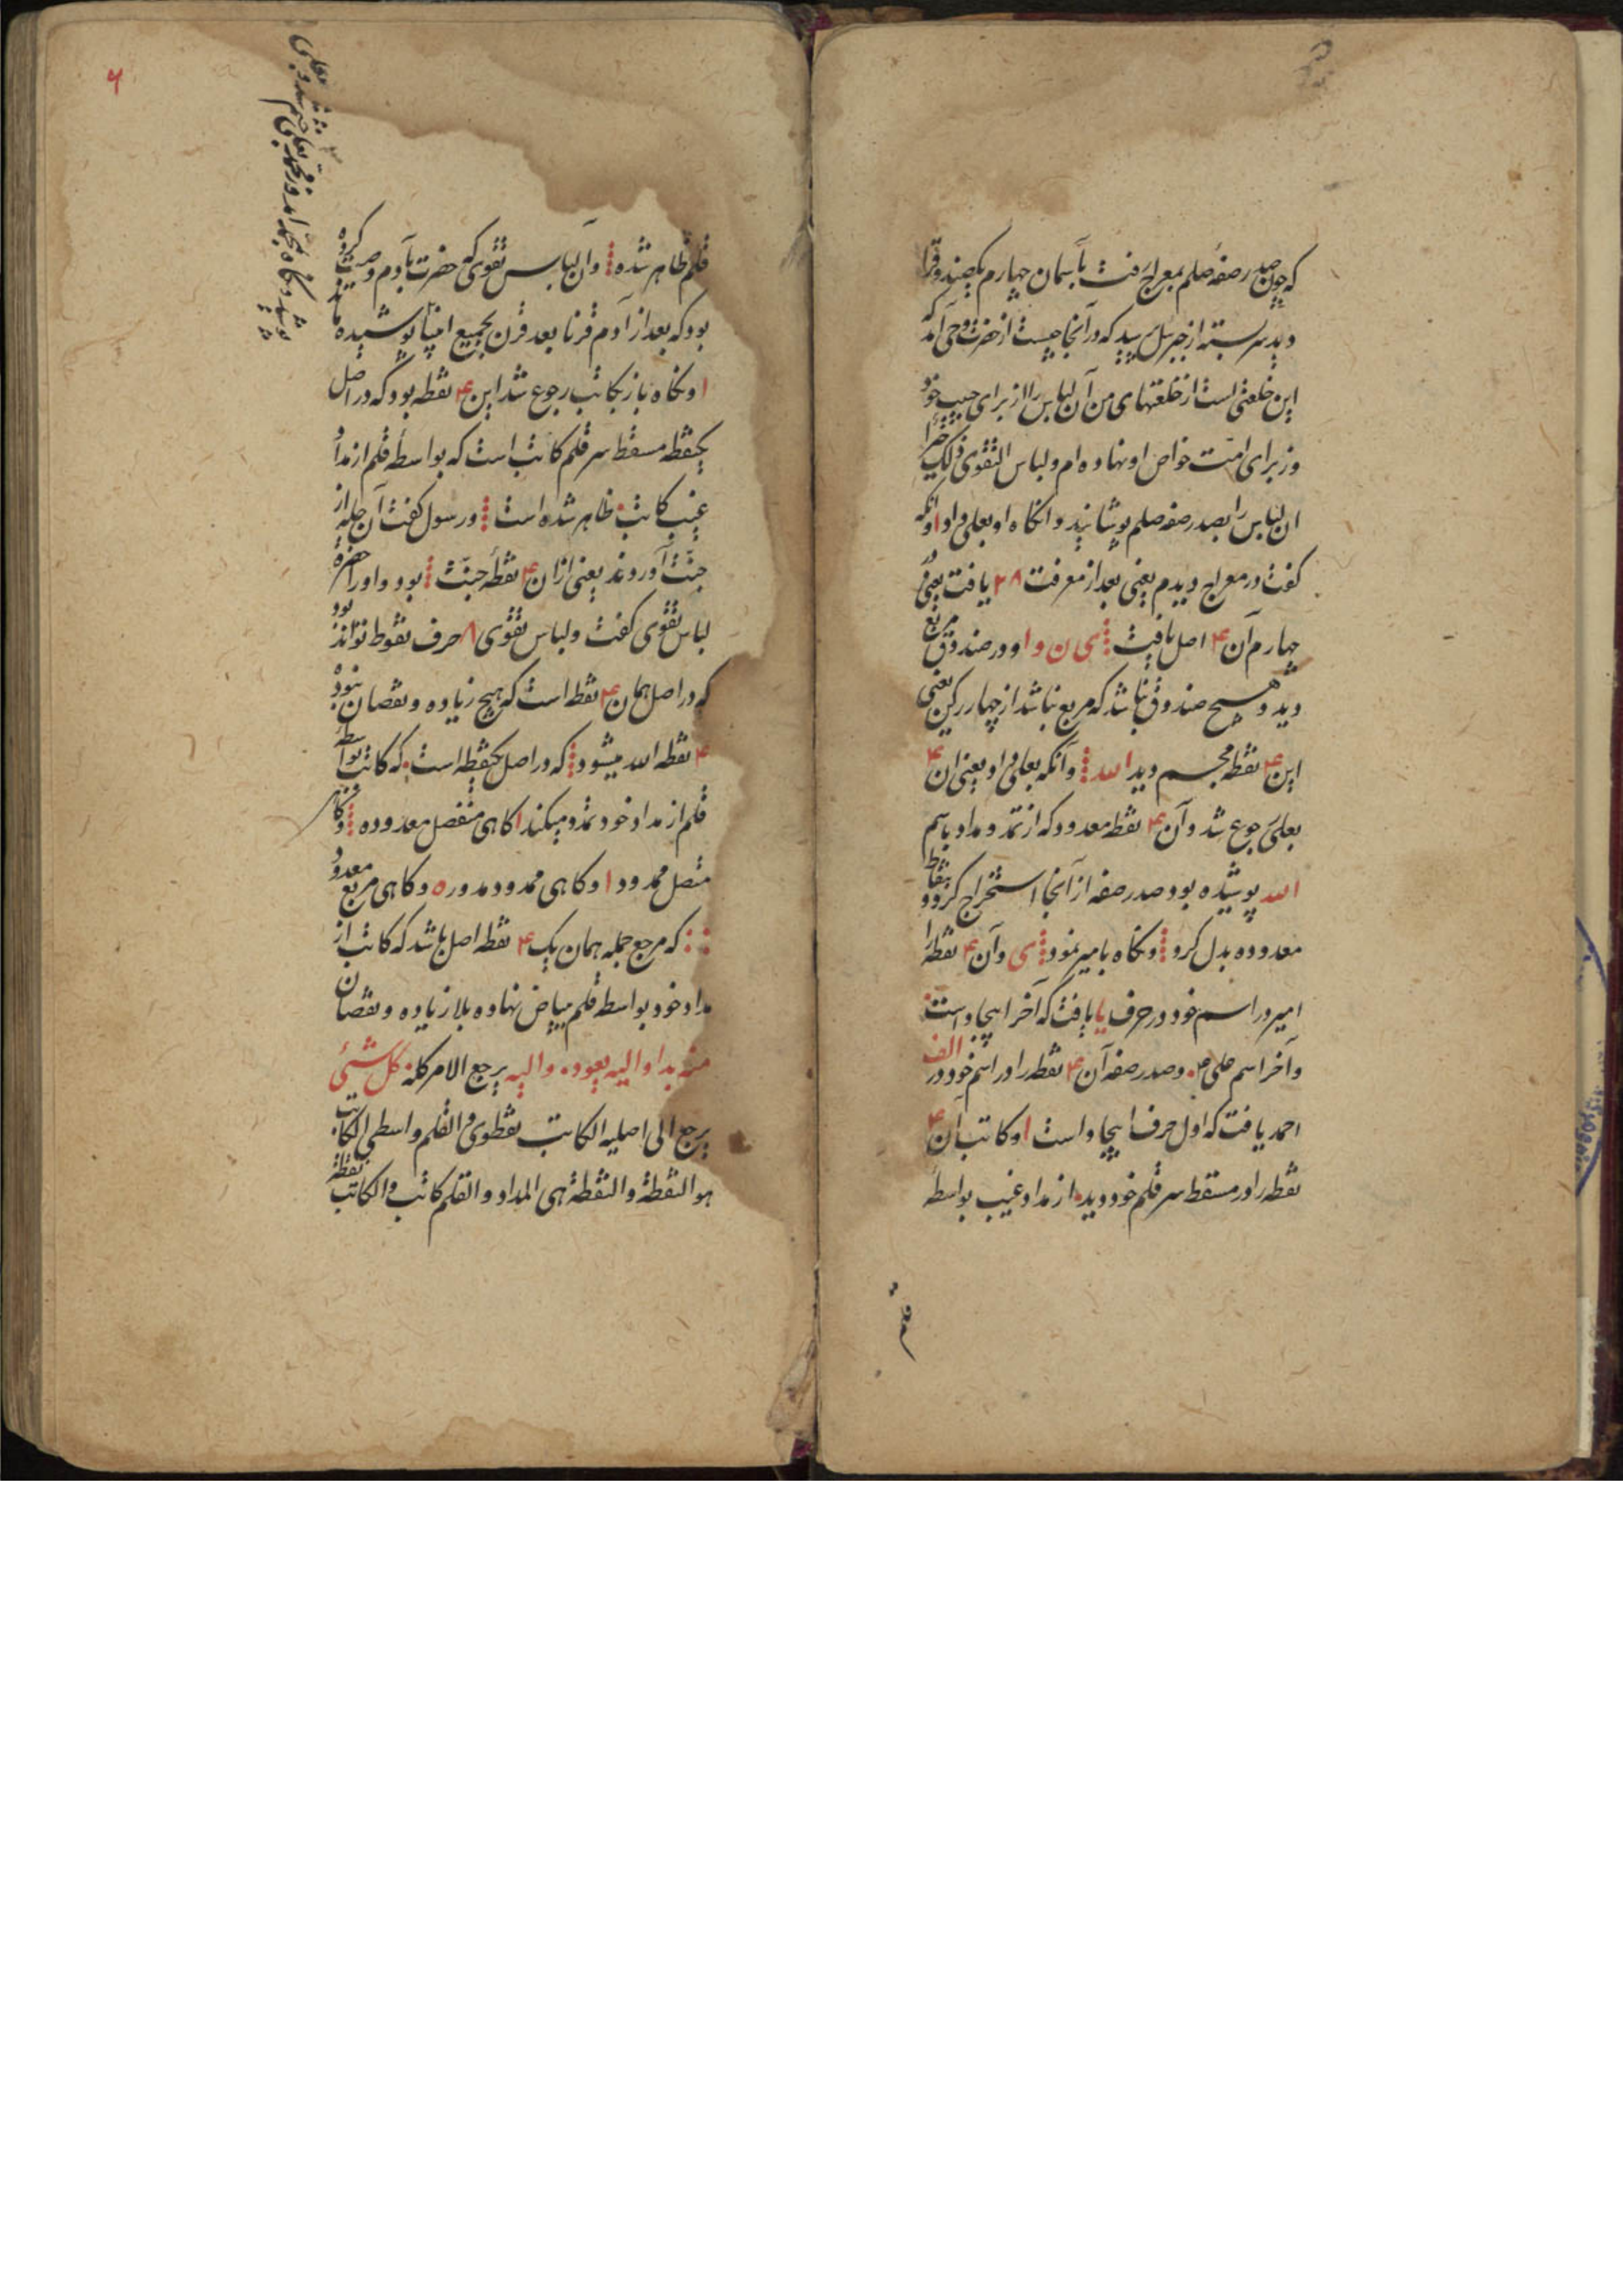 که چون صدر صفه صلم بمعراج رفت بآسمان چهارم یکصندوق را
دید سر بسته از جبرئیل پرسید که در آنجا چیست از حضرت وحی آمد که
این خلعتی است از خلعتهای من آن لباس را از برای حبیب خود
وز برای امت خواص او نهاده ام و لباس التقوی ذلک خیرا
ان لباس را بصدر صفه صلم پوشانیدند و انکاه او بعلی داد ا و انکه
کفت در معراج دیدم یعنی بعد از معرفت ۲۸ یافت یعنی در
چهارم آن ۴ اصل یافت ی ن و ا و در صندوق مربع
دید و هیچ صندوق نباشد که مربع نباشد از چهار رکن یعنی
این ۴ نقطه مجسم دید الله و آنکه بعلی داد یعنی ان ۴
بعلی رجوع شد و آن ۴ نقطه معدود که از تمد و مداد باسم
الله پوشیده بود صدر صفه از آنجا استخراج کرد و بنقاط
معدوده بدل کرد ونکاه بامیر نمود ی و آن ۴ نقطه را
امیر در اسم خود در حرف یا یافت که آخر ابجاد است
و آخر اسم علی ۴ و صدر صفه آن ۴ نقطه را در اسم خود در الف
احمد یافت که اول حرف ابجاد است ا و کاتب آن ۴
نقطه را در مسقط سر قلم خود دید از مداد غیب بواسطه
قلم
۶
قلم ظاهر شده و آن لباس تقوی که حضرت بآدم وصیت کرده
بود که بعد از آدم قرنا بعد قرن بجمیع انبیا پوشیده ماند
ا ونکاه باز بکاتب رجوع شد این ۴ نقطه بود که در اصل
یکنقطه مسقط سر قلم کاتب است که بواسطه قلم از مداد
غیب کاتب ظاهر شده است و رسول کفت آن حله از
جنت آوردند یعنی ازان ۴ نقطه جنت بود و اورا حضرة
لباس تقوی کفت و لباس تقوی ۸ حرف نقوط تواند بود
که در اصل همان ۴ نقطه است که هیچ زیاده و نقصان نبوده
۴ نقطه الله میشود که در اصل یکنقطه است که کاتب بواسطه
قلم از مداد خود تمدد میکند ا کاهی منفصل معدوده وکاهی
متصل ممدود ا و کاهی ممدود مدور ه و کاهی مربع معدود
:: که مرجع جمله همان یک ۴ نقطه اصل باشد که کاتب از
مداد خود بواسطه قلم بیاض نهاده بلا زیاده و نقصان
منه بدا و الیه یعود و الیه یرجع الامر کله کل شیئ
یرجع الی اصلیه الکاتب نقطوی و القلم واسطی الکاتب
هو النقطة و النقطة هی المداد و القلم کاتب و الکاتب نقطة